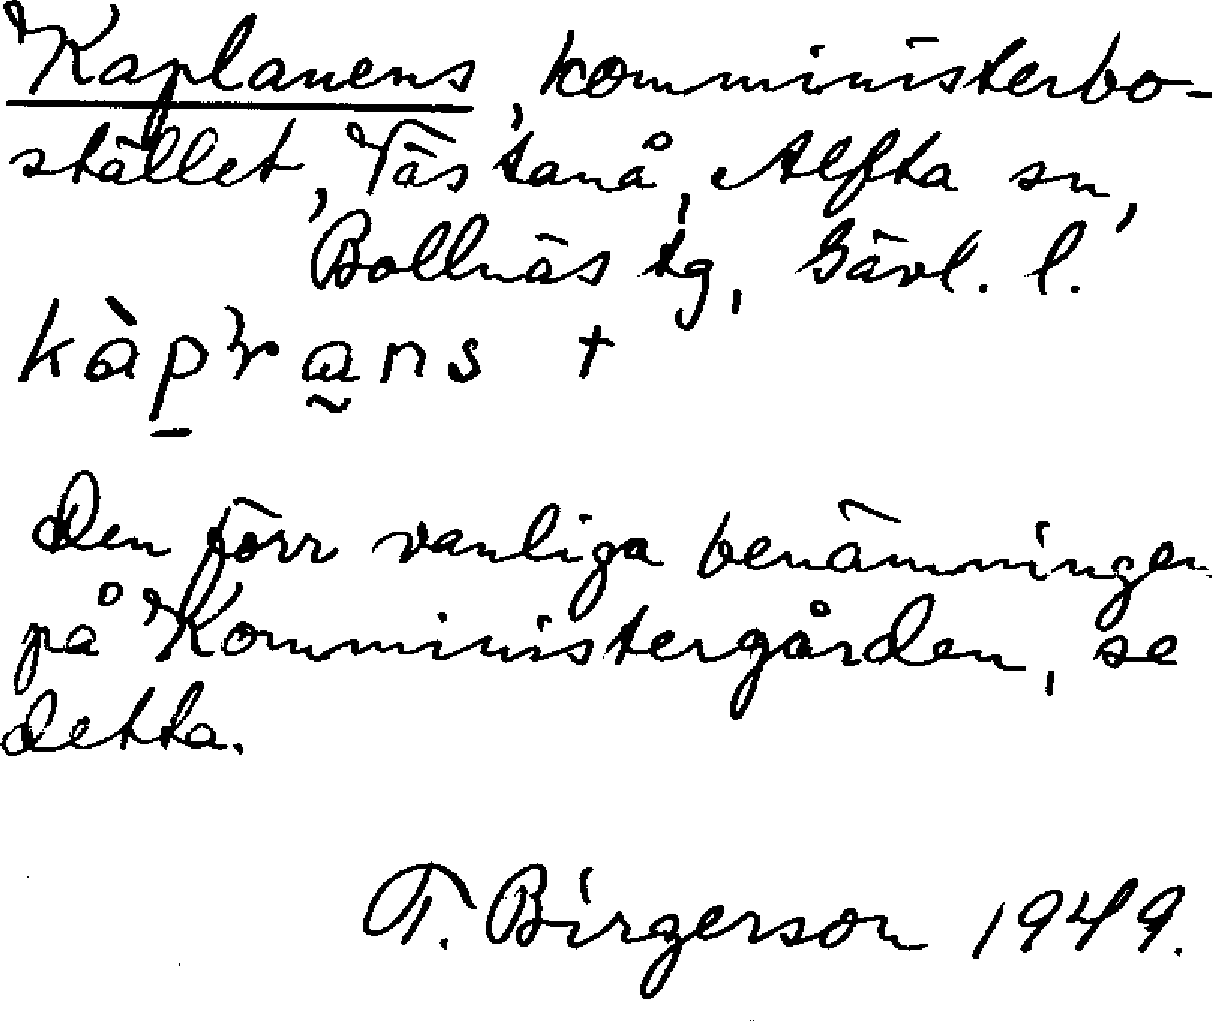 Kaplanens, komministerbo-
stället, Västanå, Alfta sn,
Bollnäs tg, Gävl. l.
kàpɽans +
Den förr vanliga benämningen
på Kommistergården, se
detta.
T. Birgerson 1949.